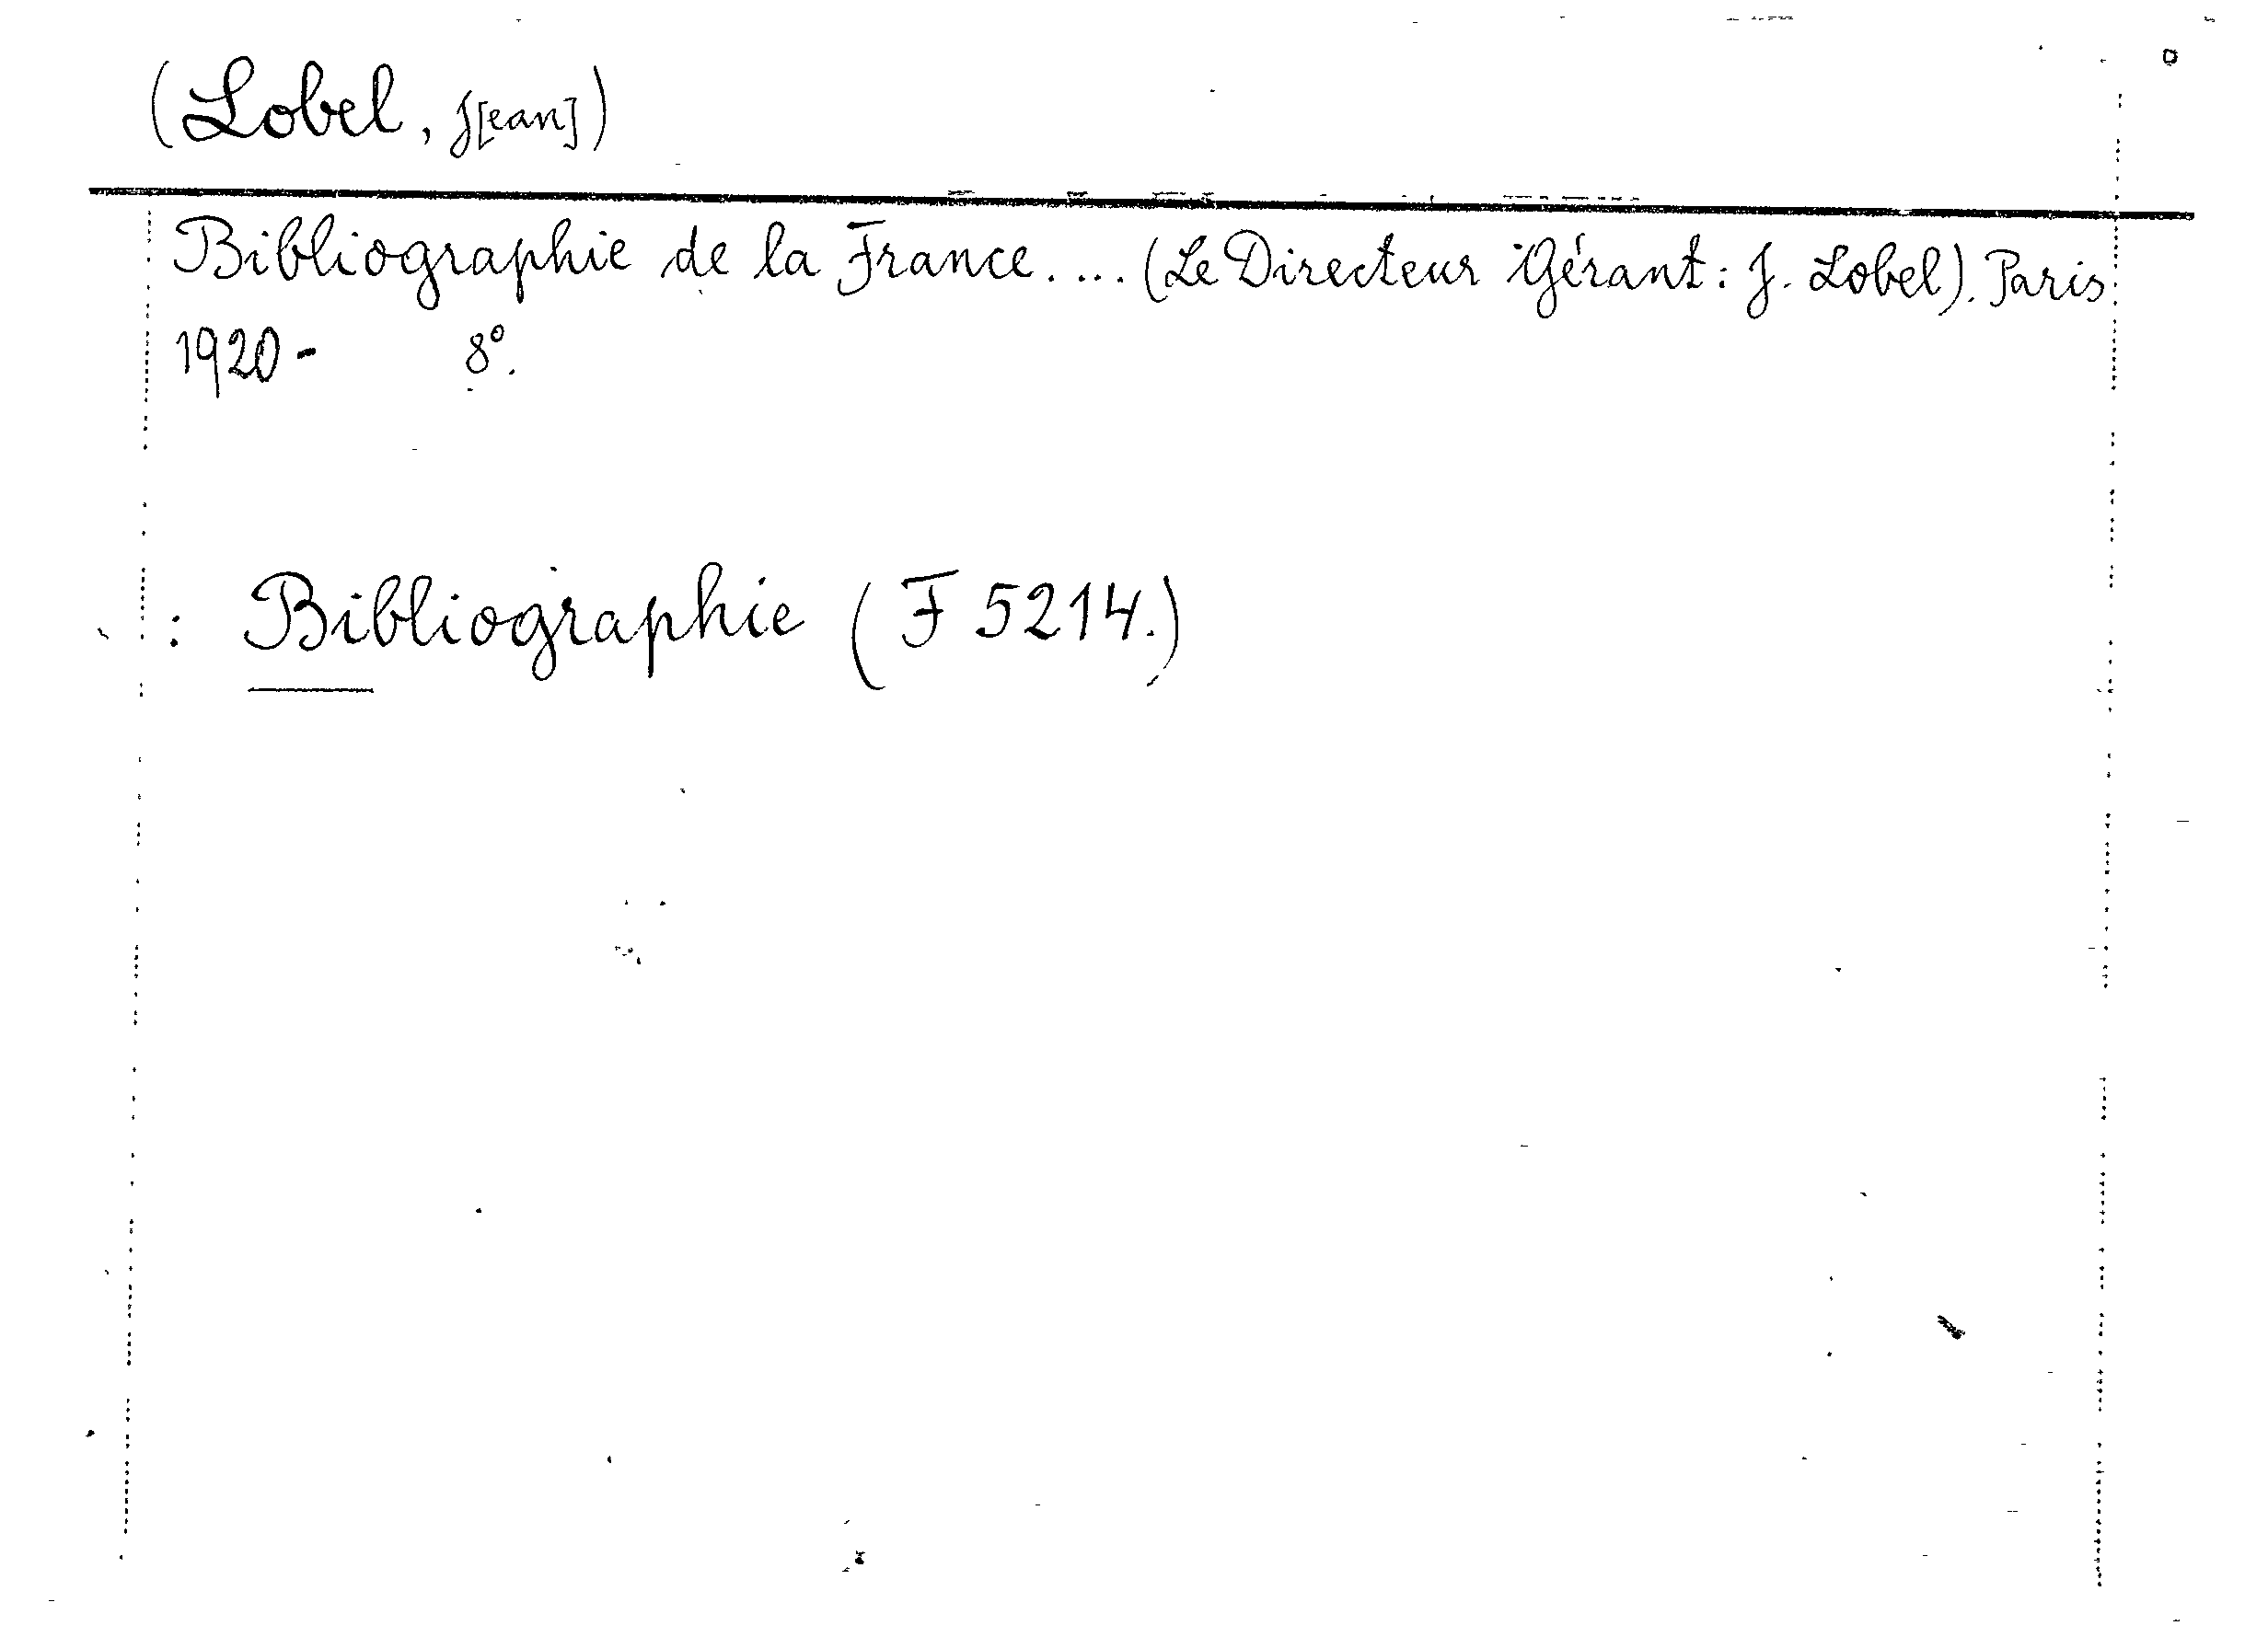 (Lobel, J[ean])
Bibliographie de la France. ... (Le Directeur Gérant: J. Lobel). Paris
1920- 8°.
: Bibliographie (F 5214.)